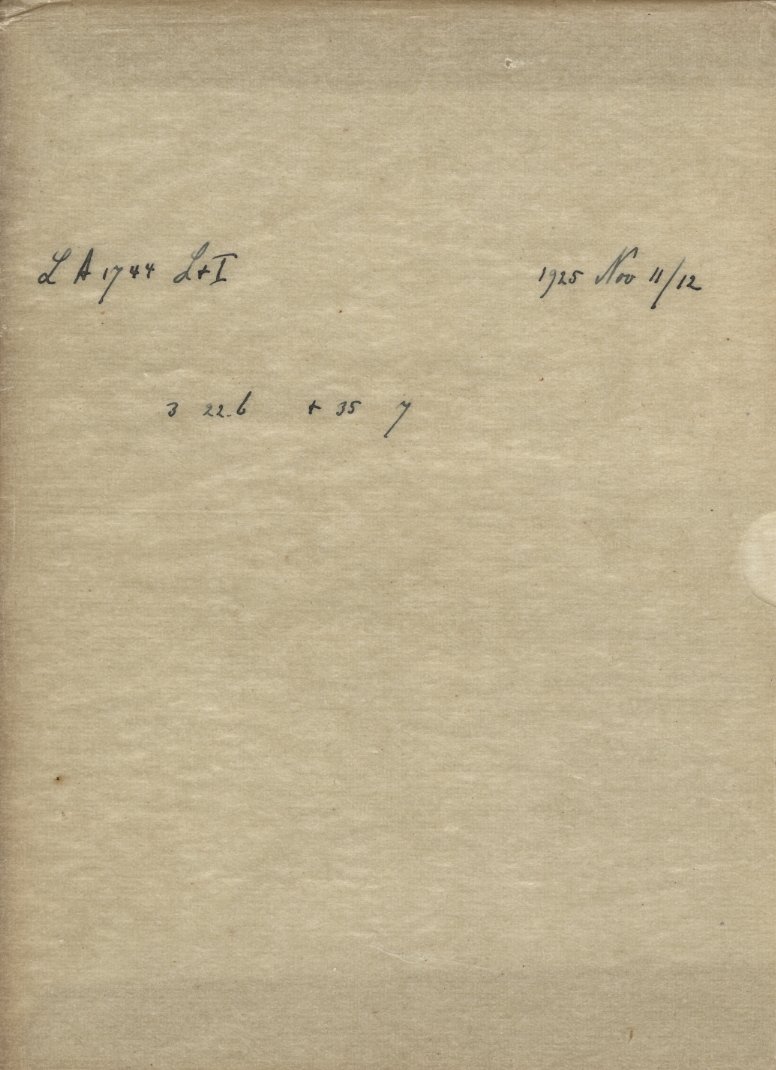 L A 1744 L+I 1925 Nov 11/12
3 22.6 + 35 7